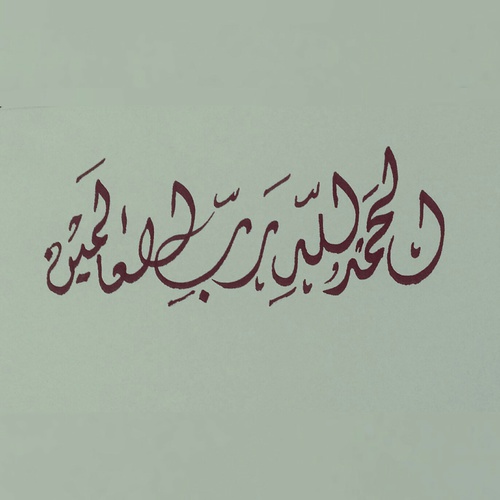 الحَمْدُ للّٰهِ رَبِّ العَالَمِيْن